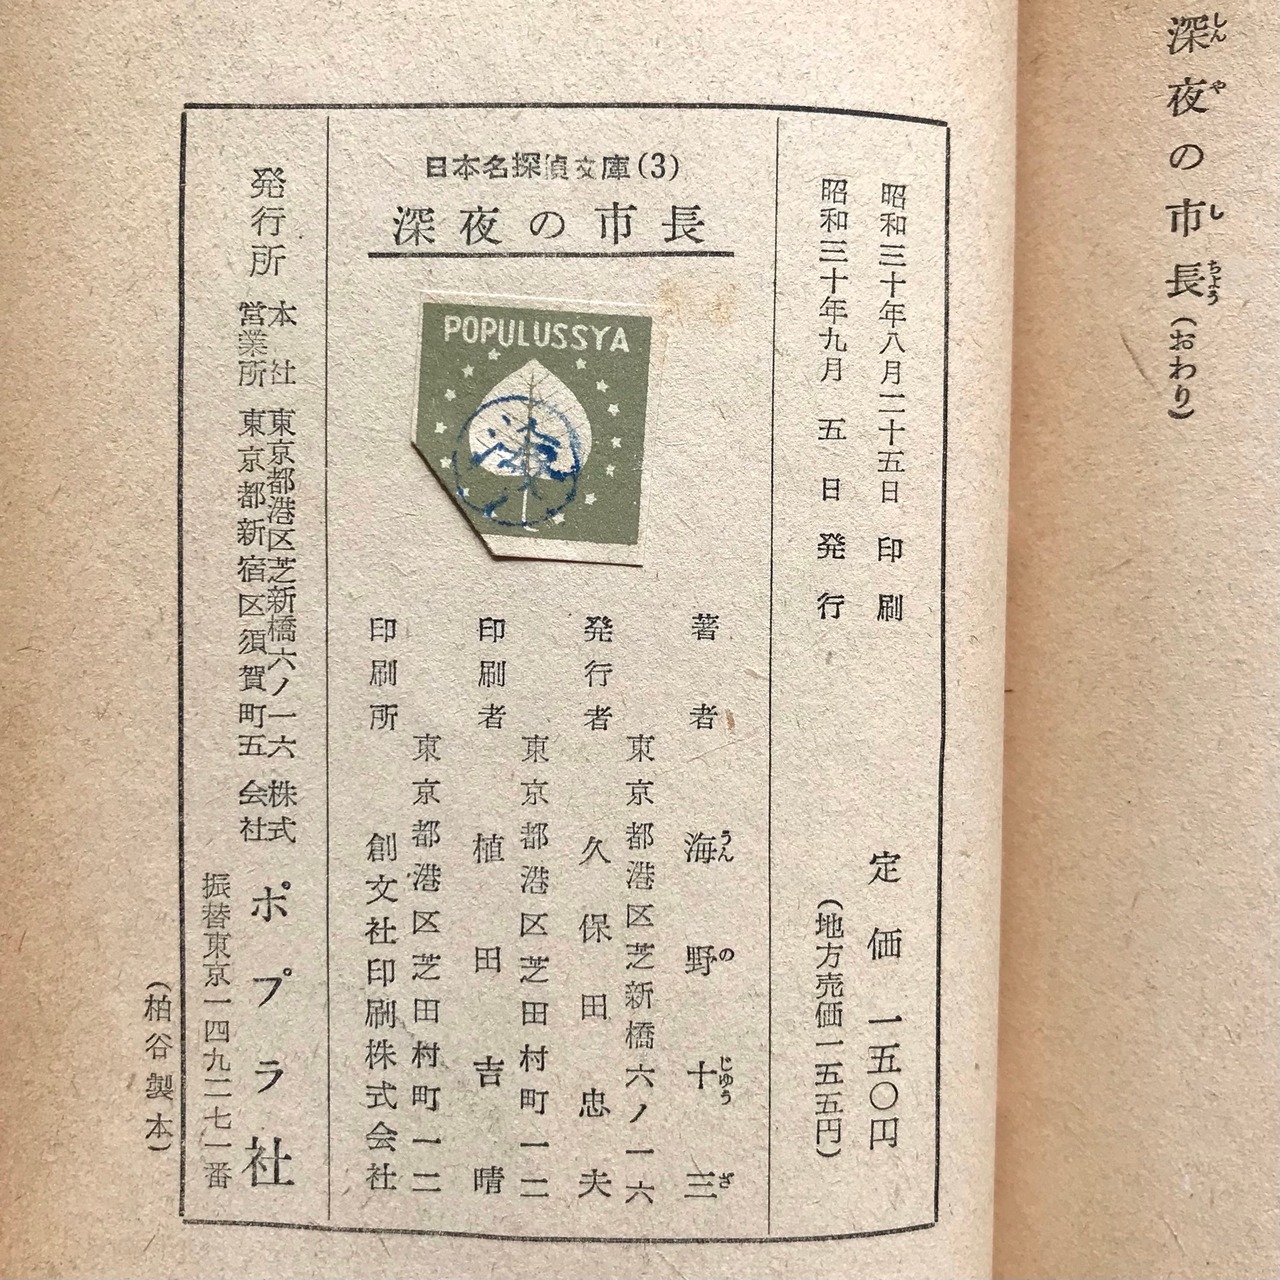 深夜の市長(おわり)
しんやしちょう
日本名探偵文庫(3)
深夜の市長
POPULUSSYA
昭和三十年八月二十五日 印刷
昭和三十年九月 五 日 発行
定価 一五〇円
(地方売価一五五円)
著者 海野十三
うんのじゅうざ
東京都港区芝新橋六ノ一六
発行者 久保田忠夫
東京都港区芝田村町一ノ二
印刷者 植田吉晴
東京都港区芝田村町一ノ二
印刷所 創文社印刷株式会社
発行所
本社 東京都港区芝新橋六ノ一六
営業所 東京都新宿区須賀町五
株式会社 ポプラ社
振替東京一四九二七一番
(柏谷製本)